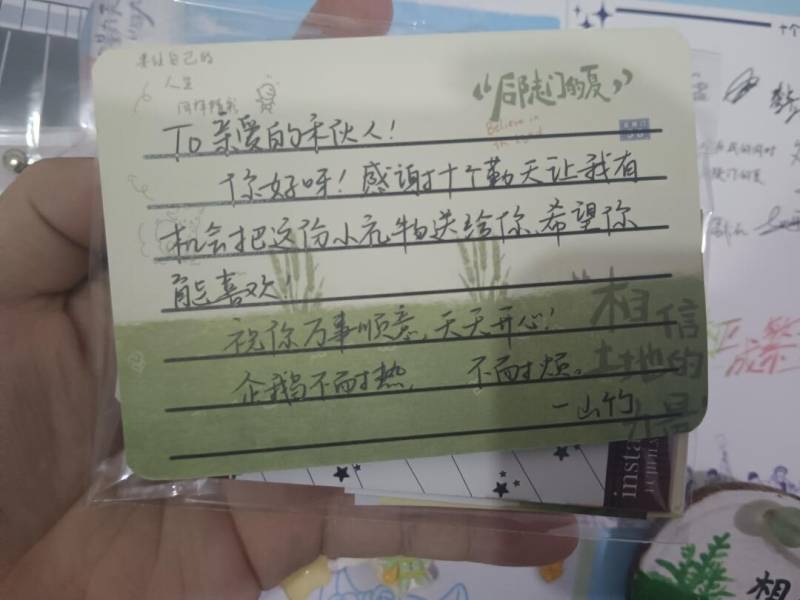 自己的
人生
“后陡门的夏”
Believe in
To 亲爱的禾伙人!
你好呀!感谢十个勤天让我有
机会把这份小礼物送给你,希望你
能喜欢!
祝你万事顺意,天天开心!
企鹅不耐热, 不耐烦。
—山竹
相信
土地的
力量
insta
十个
相